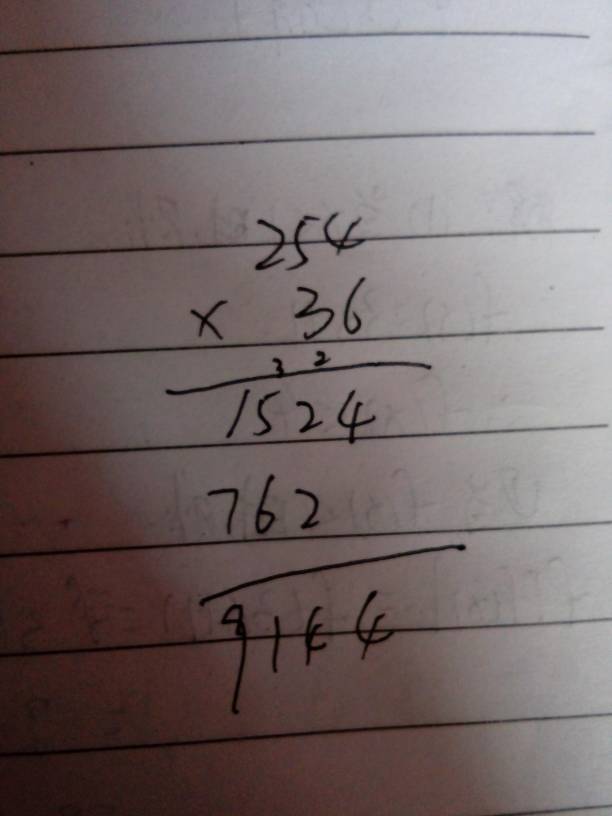 254
× 36
3 2
1524
762
9144